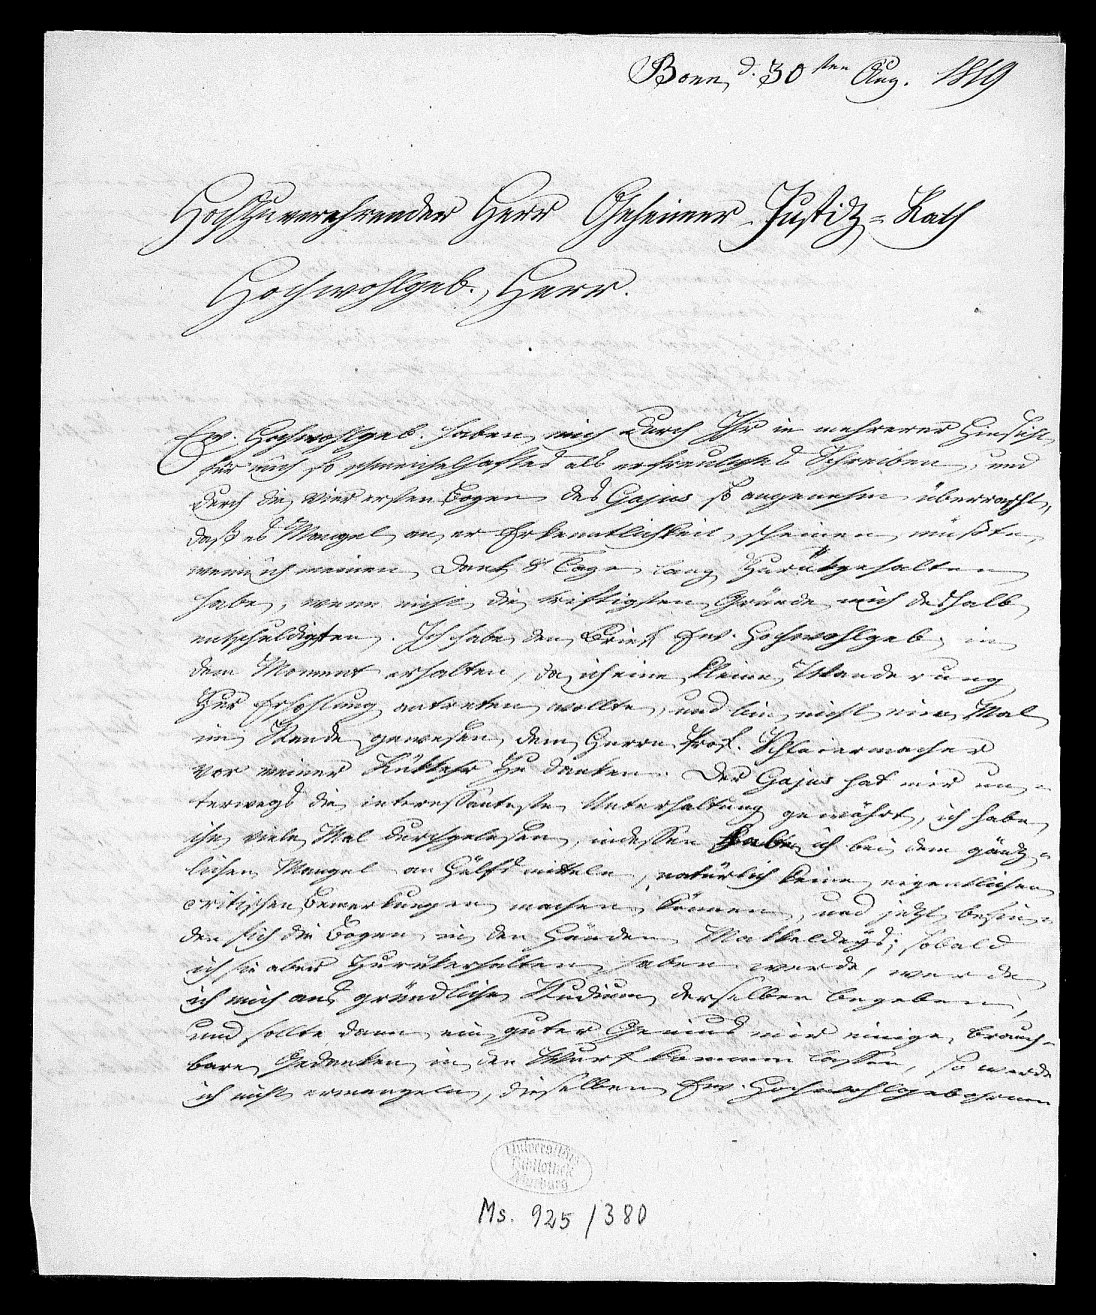 Bonn d. 30sten Aug. 1819
Hochzuverehrender Herr Geheimer Justitz-Rath
Hochwohlgeb. Herr.
Ew. Hochwohlgeb. haben mich durch Ihr in mehrerer Hinsicht
für mich so schmeichelhaftes als erfreuliches Schreiben, und
durch die vier ersten Bogen des Gajus so angenehm überrascht,
daß es Mangel an Erkenntlichkeit scheinen müßte,
wenn ich meinen Dank 8 Tage lang zurükgehalten
habe, wenn nicht die triftigsten Gründe mich deshalb
entschuldigten. Ich habe den Brief Ew. Hochwohlgeb. in
dem Moment erhalten, da ich eine kleine Wanderung
zur Erhohlung antreten wollte, und bin nicht ein Mal
im Stande gewesen dem Herrn Prof. Schleiermacher
vor meiner Rükkehr zu danken. Der Gajus hat mir un-
terwegs die interessanteste Unterhaltung gewährt, ich habe
ihn viele Mal durchgelesen, indessen habe ich bei dem gänz-
lichen Mangel an Hülfsmitteln, natürlich keine eigentlichen
critischen Bemerkungen machen können, und jetzt befin-
den sich die Bogen in den Händen Makkeldeys; sobald
ich sie aber zurükerhalten haben werde, werde
ich mich ans gründliche Studium derselben begeben,
und sollte dann ein guter Genius mir einige brauch-
bare Gedanken in den Wurf kommen lassen, so werde
ich nicht ermangeln, dieselben Ew. Hochwohlgebohrnen
Universitäts
Bibliothek
Marburg
Ms. 925/380